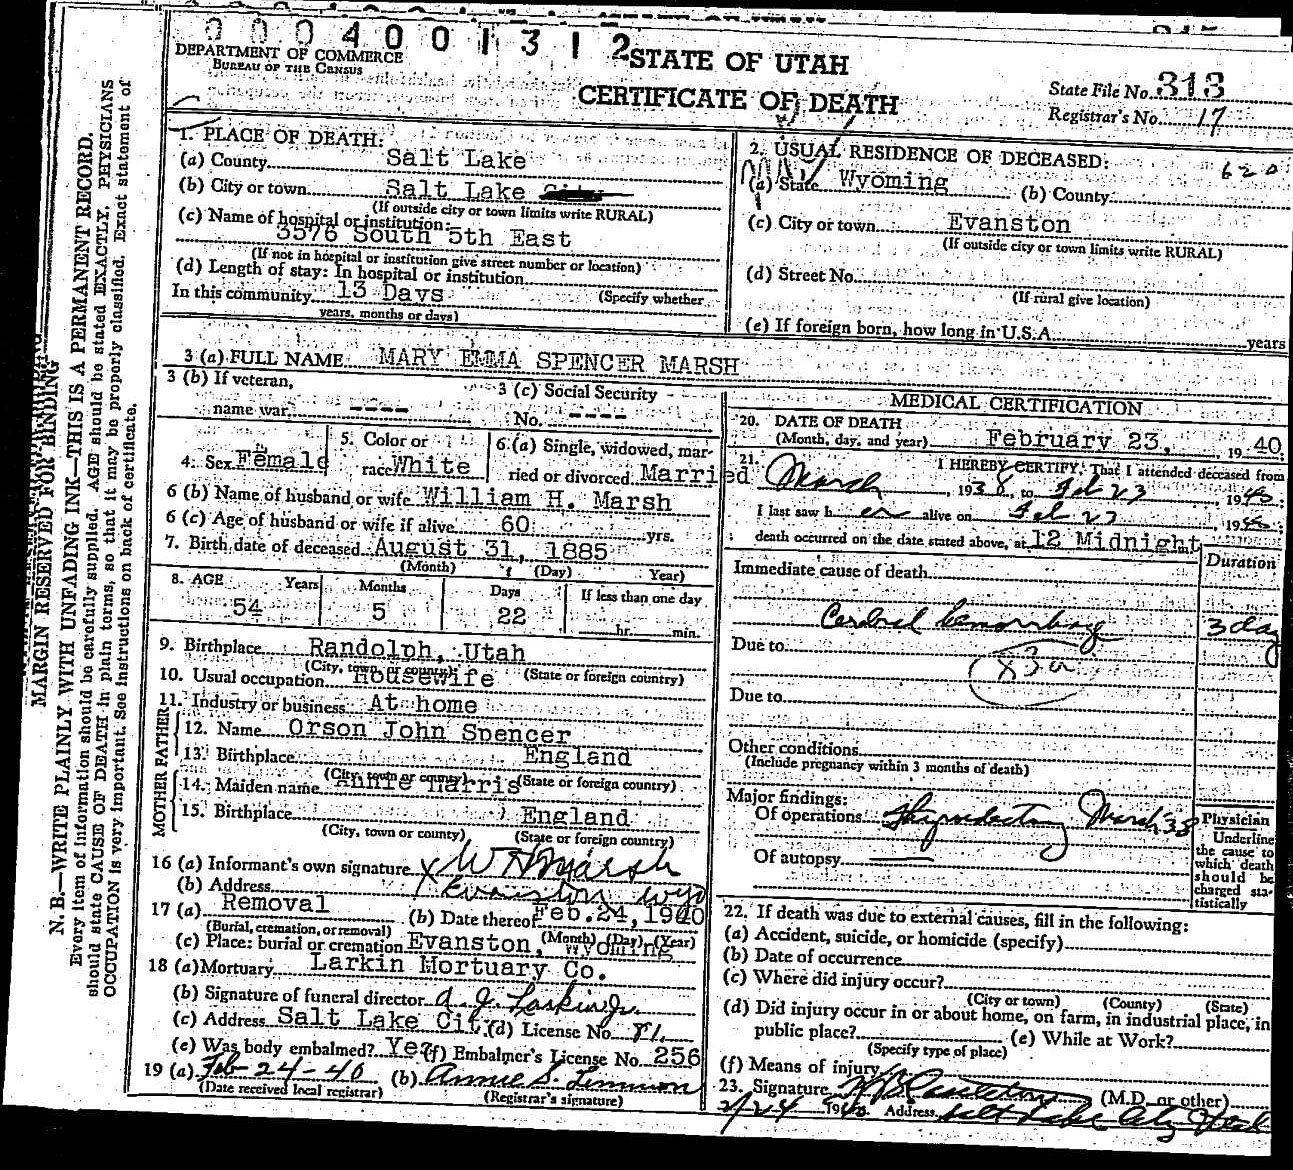 0004001312
DEPARTMENT OF COMMERCE
BUREAU OF THE CENSUS
STATE OF UTAH
CERTIFICATE OF DEATH
State File No. 313
Registrar's No. 17
1. PLACE OF DEATH:
(a) County Salt Lake
(b) City or town Salt Lake City
(If outside city or town limits write RURAL)
(c) Name of hospital or institution:
3576 South 5th East
(If not in hospital or institution give street number or location)
(d) Length of stay: In hospital or institution
In this community 13 Days (Specify whether
years, months or days)
2. USUAL RESIDENCE OF DECEASED:
620
(a) State Wyoming (b) County
(c) City or town Evanston
(If outside city or town limits write RURAL)
(d) Street No.
(If rural give location)
(e) If foreign born, how long in U.S.A. years
3 (a) FULL NAME MARY EMMA SPENCER MARSH
3 (b) If veteran,
name war ----
3 (c) Social Security
No. ----
4. Sex Female
5. Color or
race White
6 (a) Single, widowed, mar-
ried or divorced Married
6 (b) Name of husband or wife William H. Marsh
6 (c) Age of husband or wife if alive 60 yrs.
7. Birth date of deceased August 31, 1885
(Month) (Day) Year)
8. AGE Years Months Days If less than one day
54 5 22 hr. min.
9. Birthplace Randolph, Utah
(City, town or county) (State or foreign country)
10. Usual occupation Housewife
11. Industry or business At home
FATHER
12. Name Orson John Spencer
13. Birthplace England
(City, town or county) (State or foreign country)
MOTHER
14. Maiden name Annie Harris
15. Birthplace England
(City, town or county) (State or foreign country)
16 (a) Informant's own signature X W H Marsh
(b) Address X Evanston Wyo
17 (a) Removal (b) Date thereof Feb. 24, 1940
(Burial, cremation, or removal) (Month) (Day) (Year)
(c) Place: burial or cremation Evanston, Wyoming
18 (a) Mortuary Larkin Mortuary Co.
(b) Signature of funeral director A. J. Larkin Jr.
(c) Address Salt Lake City (d) License No. 81
(e) Was body embalmed? Yes (f) Embalmer's License No. 256
19 (a) Feb-24-40 (b) Annie S. Lemmon
(Date received local registrar) (Registrar's signature)
MEDICAL CERTIFICATION
20. DATE OF DEATH
(Month, day, and year) February 23, 1940.
21. I HEREBY CERTIFY, That I attended deceased from
March, 1938, to Feb 23 1940.
I last saw her alive on Feb 23, 1940.
death occurred on the date stated above, at 12 Midnight m.
Duration
Immediate cause of death
Cerebral hemorrhage 3 day
Due to
83a
Due to
Other conditions
(Include pregnancy within 3 months of death)
Major findings:
Of operations Thyroidectomy March '38
Of autopsy
Physician
Underline
the cause to
which death
should be
charged sta-
tistically
22. If death was due to external causes, fill in the following:
(a) Accident, suicide, or homicide (specify)
(b) Date of occurrence
(c) Where did injury occur?
(City or town) (County) (State)
(d) Did injury occur in or about home, on farm, in industrial place, in
public place? (e) While at Work?
(Specify type of place)
(f) Means of injury
23. Signature (M.D. or other)
2/24 1940 Address Salt Lake City Utah
MARGIN RESERVED FOR BINDING
N. B.—WRITE PLAINLY WITH UNFADING INK—THIS IS A PERMANENT RECORD.
Every item of information should be carefully supplied. AGE should be stated EXACTLY. PHYSICIANS
should state CAUSE OF DEATH in plain terms, so that it may be properly classified. Exact statement of
OCCUPATION is very important. See instructions on back of certificate.